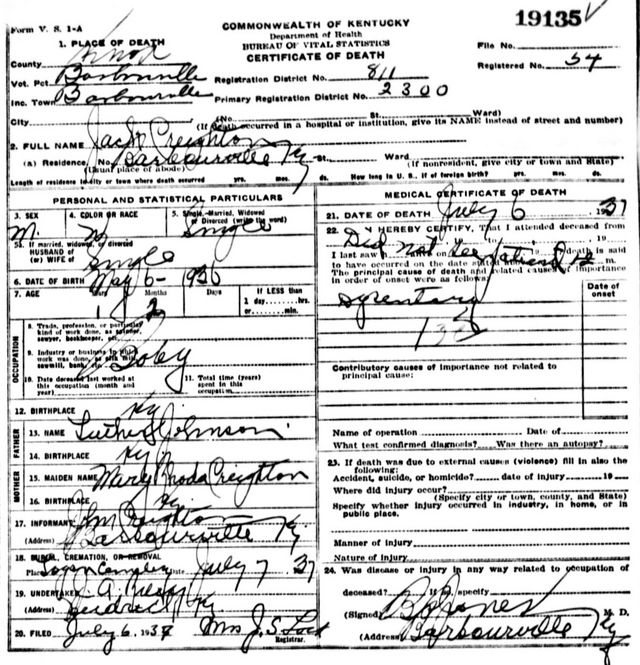 Form V. S. 1-A
COMMONWEALTH OF KENTUCKY
Department of Health
BUREAU OF VITAL STATISTICS
CERTIFICATE OF DEATH
19135
File No.
Registered No. 54
1. PLACE OF DEATH
County Knox
Vot. Pct. Barbourville Registration District No. 811
Inc. Town Barbourville Primary Registration District No. 2300
City (No. St. Ward)
(If death occurred in a hospital or institution, give its NAME instead of street and number)
2. FULL NAME Jack Creighton
(a) Residence. No. Barbourville Ky St. Ward
(Usual place of abode) (If nonresident, give city or town and State)
Length of residence in city or town where death occurred yrs. mos. ds. How long in U. S., if of foreign birth? yrs. mos. ds.
PERSONAL AND STATISTICAL PARTICULARS
3. SEX M. 4. COLOR OR RACE 5. Single, Married, Widowed or Divorced (write the word) Single
5a. If married, widowed, or divorced
HUSBAND of
(or) WIFE of Single
6. DATE OF BIRTH May 6- 1936
7. AGE Years Months Days If LESS than
1 2 1 day......hrs.
or......min.
OCCUPATION
8. Trade, profession, or particular
kind of work done, as spinner,
sawyer, bookkeeper, etc.
9. Industry or business in which
work was done, as silk mill,
sawmill, bank, etc.
10. Date deceased last worked at
this occupation (month and
year)
11. Total time (years)
spent in this
occupation
12. BIRTHPLACE Ky
FATHER
13. NAME Luther Johnson
14. BIRTHPLACE Ky
MOTHER
15. MAIDEN NAME Mary Rhoda Creighton
16. BIRTHPLACE Ky
17. INFORMANT Creighton
(Address) Barbourville Ky
18. BURIAL, CREMATION, OR REMOVAL
Place Cemetery Date July 7 37
19. UNDERTAKER
Ky
20. FILED July 6, 1937 Mrs J. S.
Registrar.
MEDICAL CERTIFICATE OF DEATH
21. DATE OF DEATH July 6 1937
22. I HEREBY CERTIFY, That I attended deceased from
Did Not See Patient
I last saw h alive on 19 death is said
to have occurred on the date stated above, at 12 m.
The principal cause of death and related causes of importance
in order of onset were as follows:
Date of
onset
Dysentery
Contributory causes of importance not related to
principal cause:
Name of operation Date of
What test confirmed diagnosis? Was there an autopsy?
23. If death was due to external causes (violence) fill in also the
following:
Accident, suicide, or homicide? date of injury 19
Where did injury occur?
(Specify city or town, county, and State)
Specify whether injury occurred in industry, in home, or in
public place.
Manner of injury
Nature of injury
24. Was disease or injury in any way related to occupation of
deceased? If so, specify
(Signed) Jones M. D.
(Address) Barbourville Ky